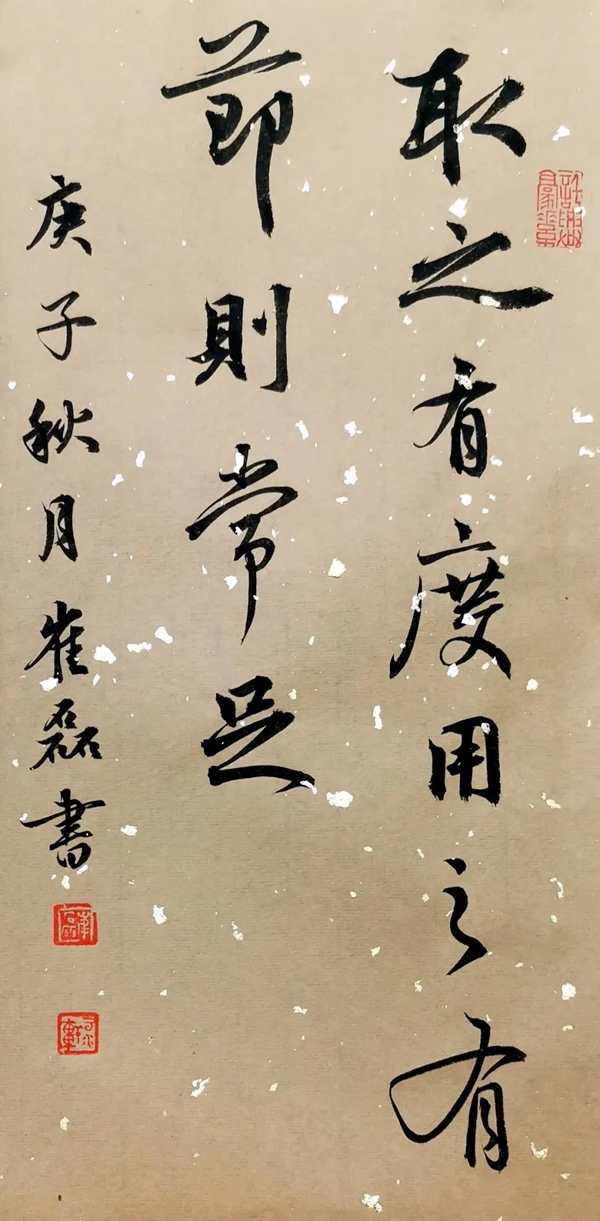 取之有度用之有
節則常足
庚子秋月崔磊書